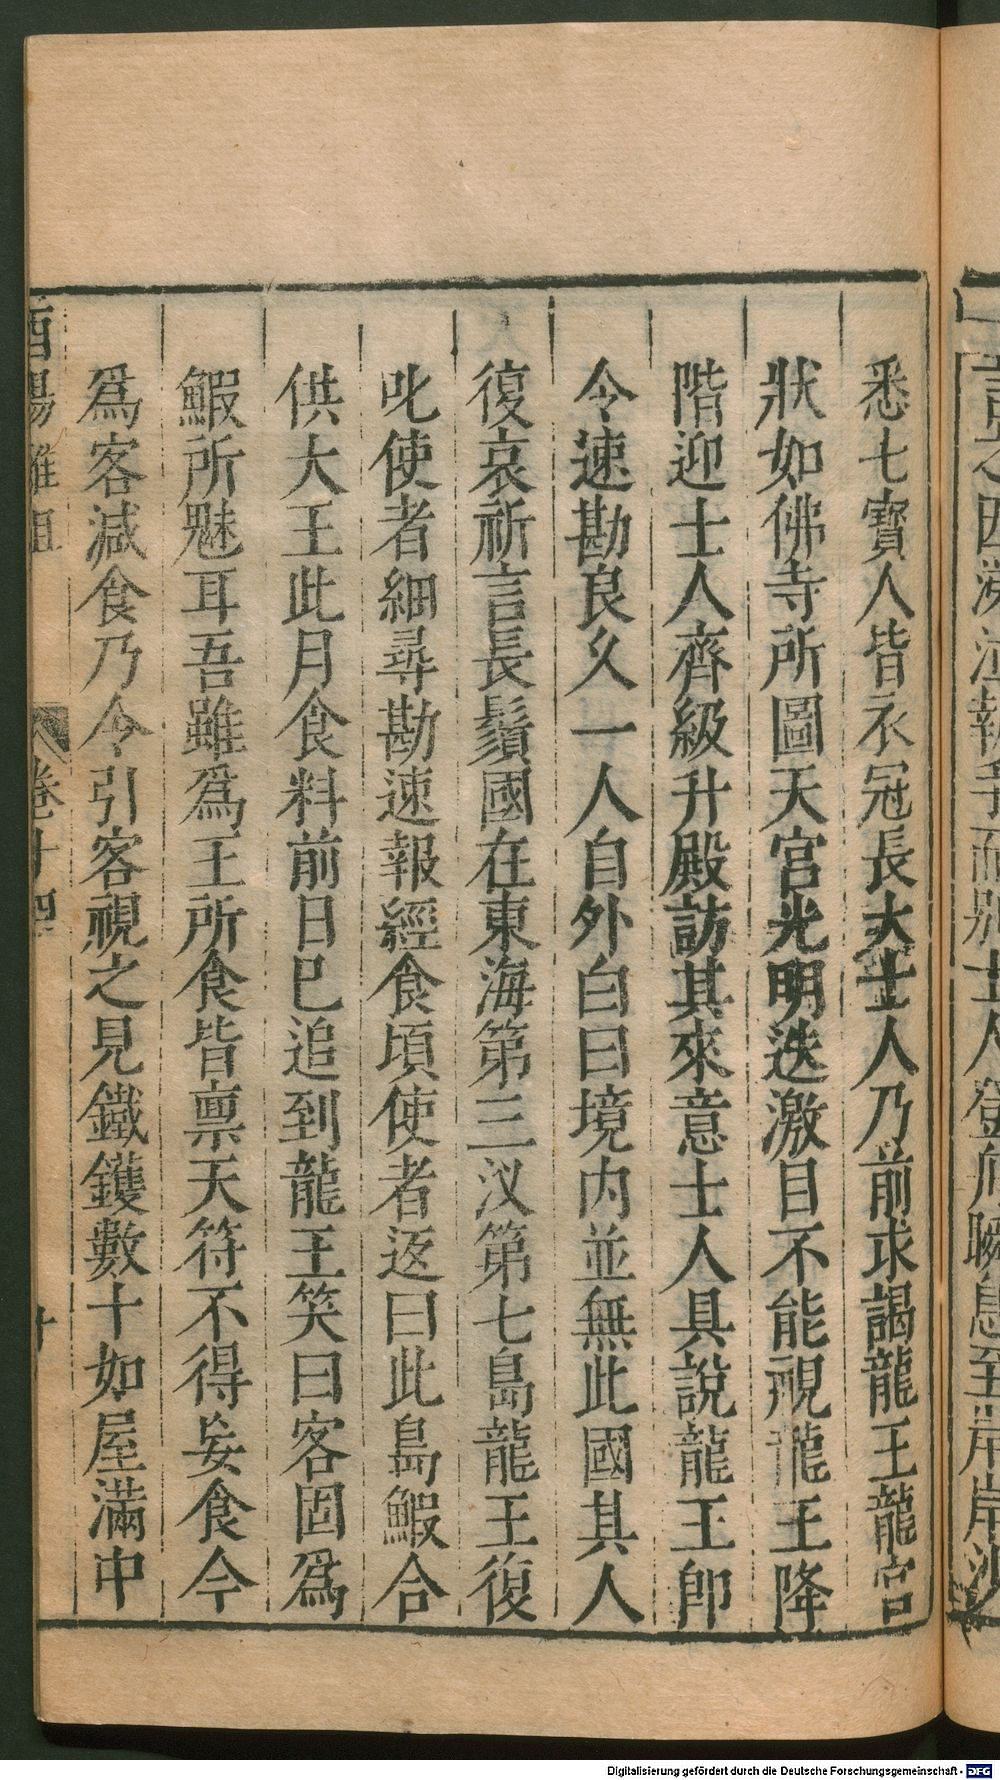 悉七寳人皆衣冠長大士人乃前求謁龍王龍宮
狀如佛寺所圖天宮光明迭激目不能視龍王降
階迎士人齊級升殿訪其來意士人具說龍王卽
令速勘良久一人自外白曰境內並無此國其人
復哀祈言長鬚國在東海第三汊第七島龍王復
叱使者細尋勘速報經食頃使者返曰此島鰕合
供大王此月食料前日已追到龍王笑曰客固爲
鰕所魅耳吾雖爲王所食皆禀天符不得妄食今
爲客減食乃令引客視之見鐵鑊數十如屋滿中
酉陽雜俎
卷十四
十
Digitalisierung gefördert durch die Deutsche Forschungsgemeinschaft - DFG